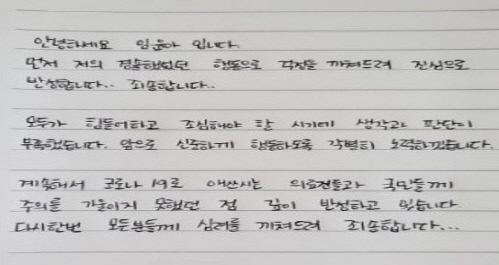 안녕하세요 임윤아 입니다.
먼저 저의 경솔했었던 행동으로 걱정을 끼쳐드려 진심으로
반성합니다.. 죄송합니다..
모두가 힘들어하고 조심해야 할 시기에 생각과 판단이
부족했습니다. 앞으로 신중하게 행동하도록 각별히 노력하겠습니다.
계속해서 코로나 19로 애쓰시는 의료진들과 국민들께
주의를 기울이지 못했던 점 깊이 반성하고 있습니다
다시한번 모든분들께 심려를 끼쳐드려 죄송합니다...